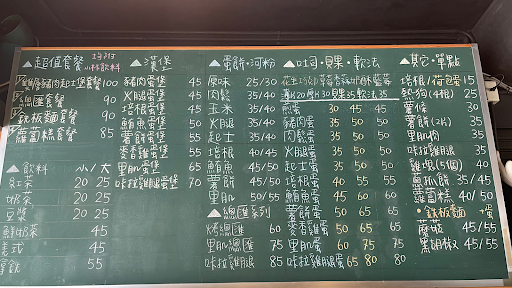 ▲超值套餐 均附小杯飲料
豬肉起士堡套餐100
總匯套餐 90
鉄板麵套餐 90
蘿蔔糕套餐 85
▲飲料 小/大
紅茶 20 25
奶茶 20 25
豆漿 20 25
鮮奶茶 45
美式 45
拿鉄 55
▲漢保
豬肉蛋堡 45
火腿蛋堡 45
培根蛋堡 45
鮪魚蛋堡 50
薯餅蛋堡 55
麥香雞蛋堡 55
里肌蛋堡 65
咔拉雞腿蛋堡 70
▲蛋餅·河粉
原味 25/30
肉鬆 35/40
玉米 35/40
火腿 35/40
起士 35/40
培根 40/45
鮪魚 45/50
薯餅 45/50
里肌 50/55
▲總匯系列
烤總匯 60
里肌總匯 75
咔拉雞腿 85
▲吐司·貝果·軟法
薄片20厚片30貝果35軟法35
煎蛋 30 45 45
豬肉蛋 35 50 50
肉鬆蛋 35 50 50
火腿蛋 35 50 50
起士蛋 35 50 50
培根蛋 40 55 55
鮪魚蛋 45 60 60
薯餅蛋 50 65 65
麥香雞蛋 50 65 65
里肌蛋 60 75 75
咔拉雞腿蛋 65 80 80
▲其它·單點
培根/荷包蛋15
熱狗(4根) 25
薯條 30
薯餅(2片) 35
里肌肉 35
咔拉雞腿 35
雞塊(5個) 40
蔥抓餅 35/45
蘿蔔糕 40/50
·鉄板麵 +蛋
蘑菇 45/55
黑胡椒 45/55